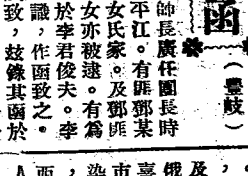 函
（豐岐）
師長廣任團長時
平江。有匪鄧某
女氏家。及鄧匪
女亦被逮。有為
於李君俊夫。李
識，作函致之。
致，茲錄其函於
及
俄
喜
市
染